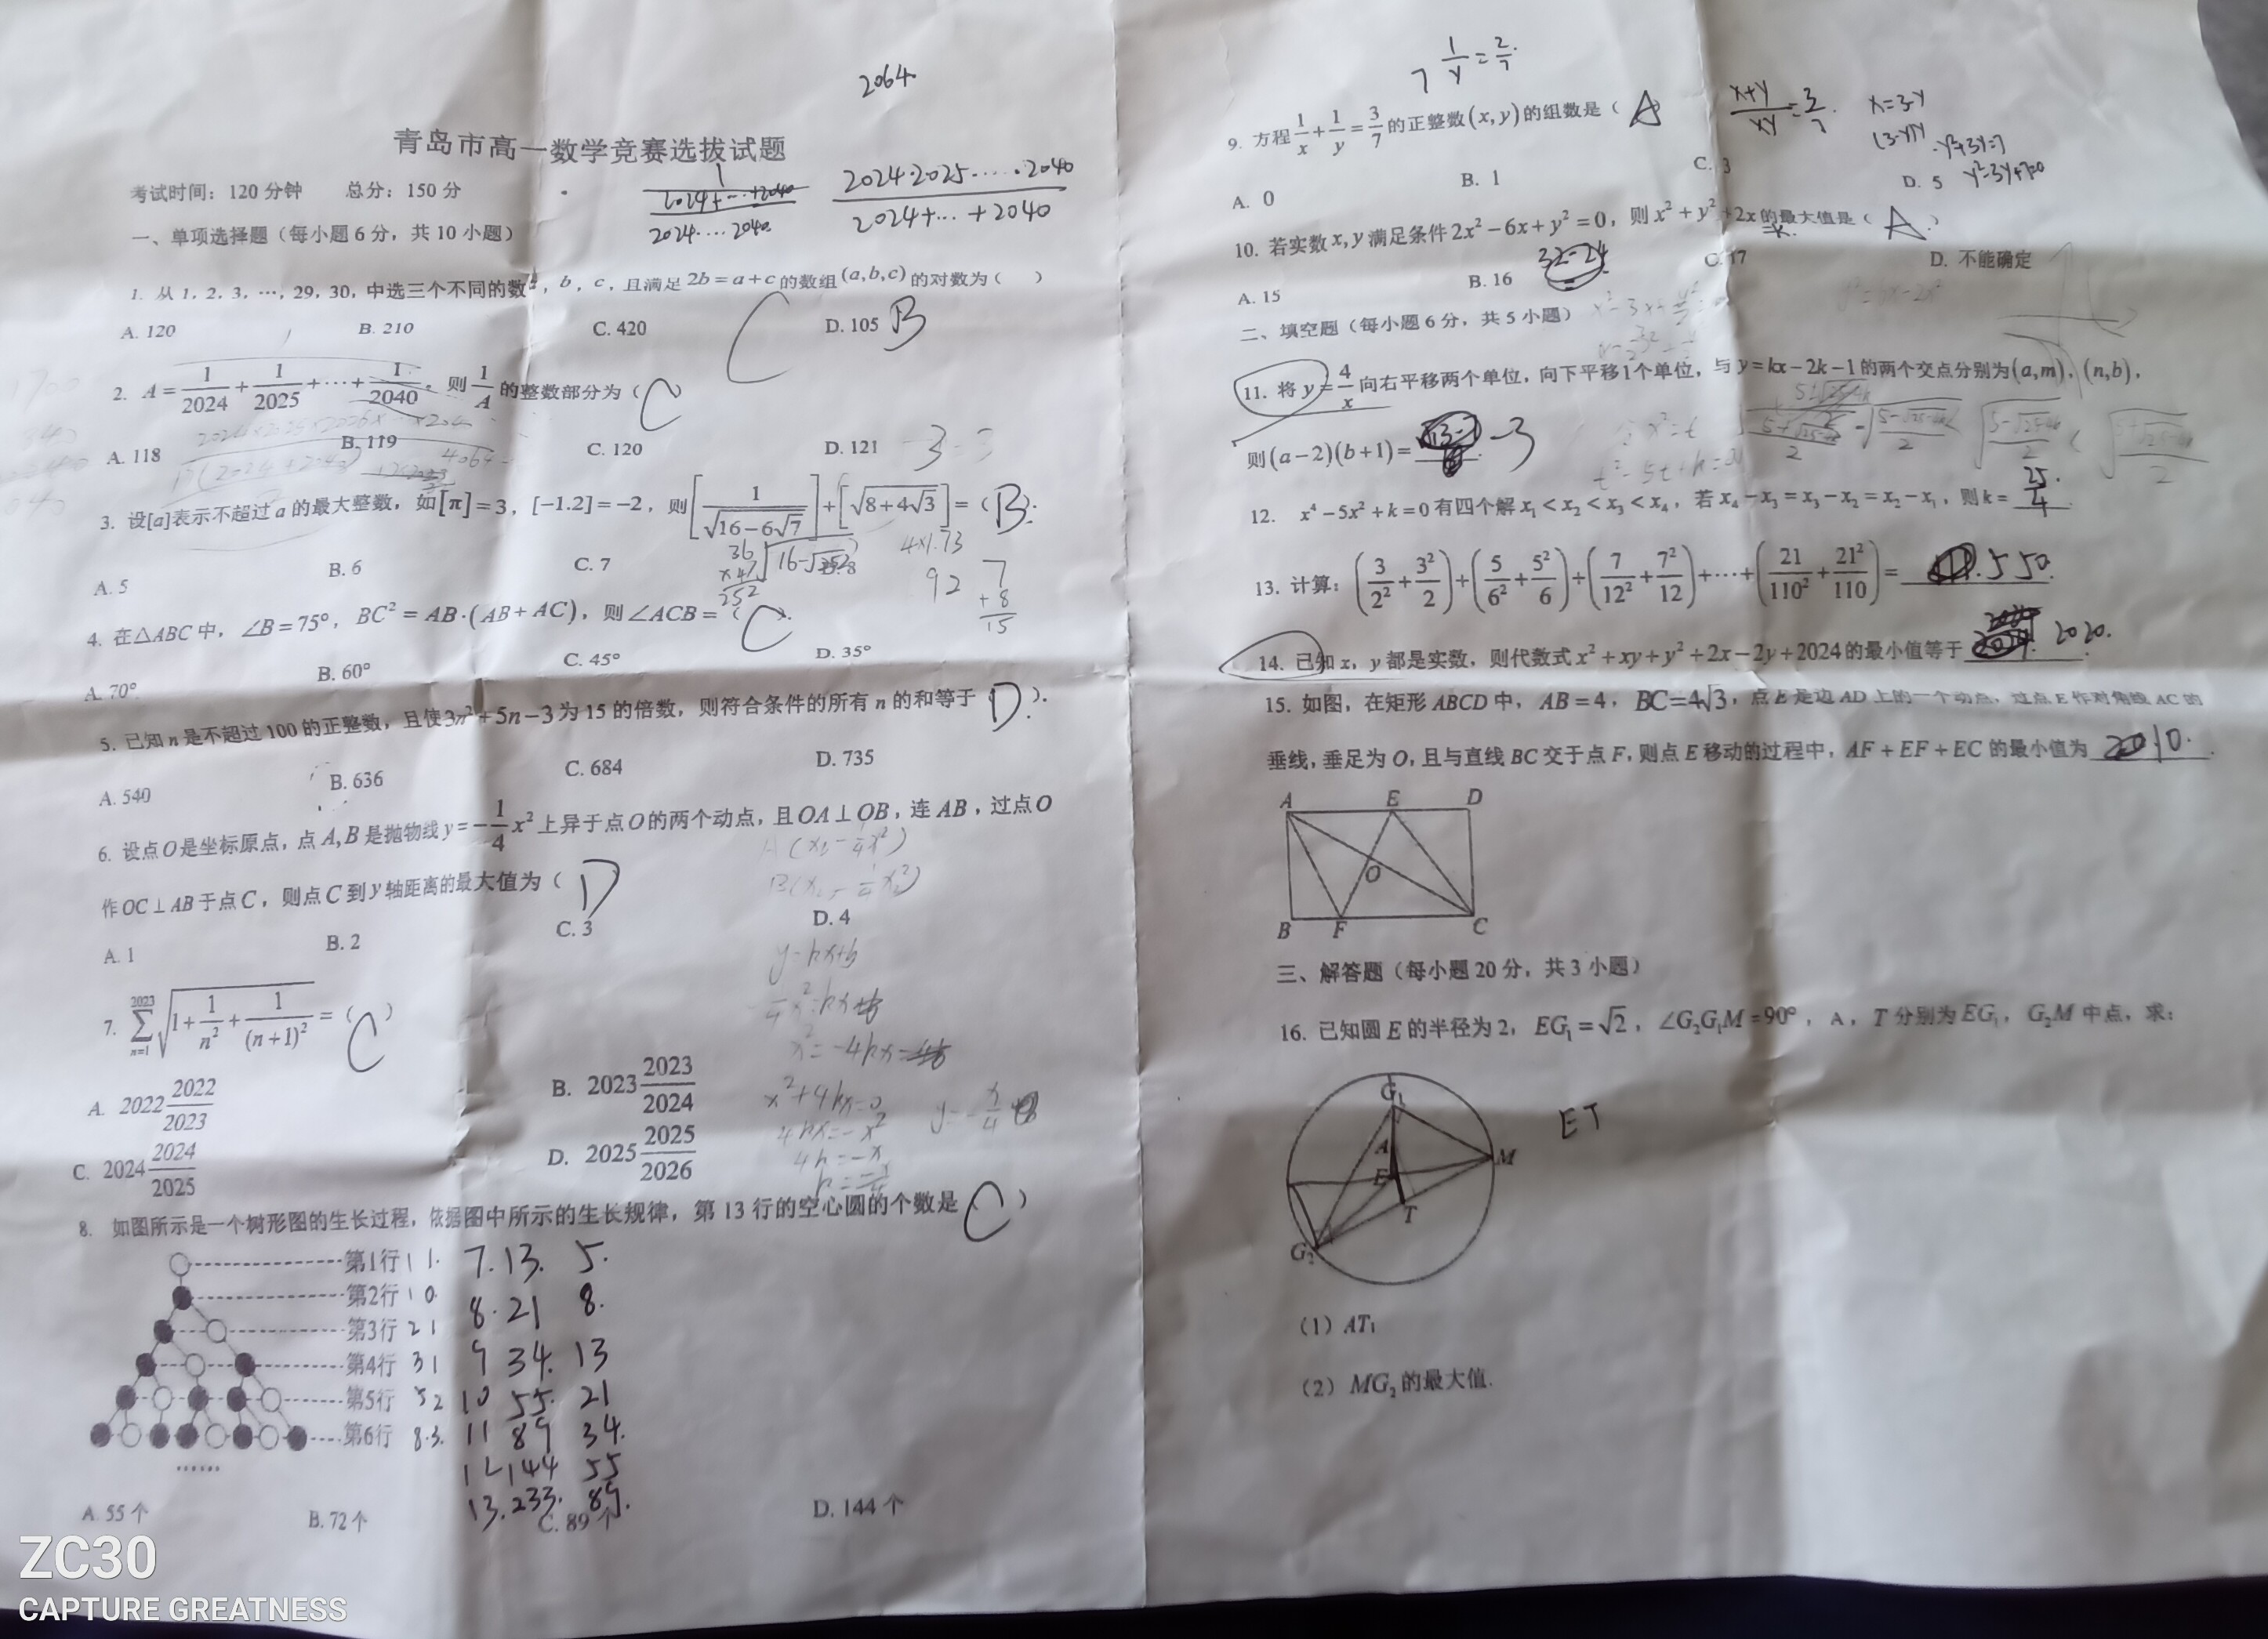 2064.
青岛市高一数学竞赛选拔试题
考试时间：120分钟 总分：150分
1
2024+…+2040
2024.…2040.
2024·2025·…·2040
2024+…+2040
一、单项选择题（每小题6分，共10小题）
1. 从1，2，3，…，29，30，中选三个不同的数，b，c，且满足2b=a+c的数组(a,b,c)的对数为（ ）
C B
A. 120 B. 210 C. 420 D. 105
2. A=1/2024+1/2025+…+1/2040，则1/A的整数部分为（C）
A. 118 B. 119 C. 120 D. 121
3. 设[a]表示不超过a的最大整数，如[π]=3，[-1.2]=-2，则[1/√(16-6√7)]+[√(8+4√3)]=（B）.
A. 5 B. 6 C. 7 D. 8
36
×47
252
4×1.73
92
7
+8
15
4. 在△ABC中，∠B=75°，BC²=AB·(AB+AC)，则∠ACB=（C）.
A. 70° B. 60° C. 45° D. 35°
5. 已知n是不超过100的正整数，且使3n²+5n-3为15的倍数，则符合条件的所有n的和等于（D）.
A. 540 B. 636 C. 684 D. 735
6. 设点O是坐标原点，点A,B是抛物线y=-1/4x²上异于点O的两个动点，且OA⊥OB，连AB，过点O
作OC⊥AB于点C，则点C到y轴距离的最大值为（D
A. 1 B. 2 C. 3 D. 4
y=kx+b
x²+4kx=0
4kx=-x²
4k=-x
7. ∑(n=1→2023)√(1+1/n²+1/(n+1)²)=（C）
A. 2022 2022/2023 B. 2023 2023/2024
C. 2024 2024/2025 D. 2025 2025/2026
8. 如图所示是一个树形图的生长过程，依据图中所示的生长规律，第13行的空心圆的个数是（C）
第1行 1 1. 7. 13. 5.
第2行 1 0. 8. 21 8.
第3行 2 1 9 34. 13
第4行 3 1 10 55. 21
第5行 5 2 11 89 34.
第6行 8.3. 12 144 55
…… 13. 233. 89.
A. 55个 B. 72个 C. 89个 D. 144个
7 1/y=2/7.
9. 方程1/x+1/y=3/7的正整数(x,y)的组数是（A）
(x+y)/xy=3/7.
x=3-y
(3-y)y
-y²+3y=7
y²-3y+7=0
A. 0 B. 1 C. 3 D. 5
10. 若实数x,y满足条件2x²-6x+y²=0，则x²+y²+2x的最大值是（A）
A. 15 B. 16 C. 17 D. 不能确定
32-24
二、填空题（每小题6分，共5小题）
11. 将y=4/x向右平移两个单位，向下平移1个单位，与y=kx-2k-1的两个交点分别为(a,m)，(n,b)，
则(a-2)(b+1)= -3
12. x⁴-5x²+k=0有四个解x₁<x₂<x₃<x₄，若x₄-x₃=x₃-x₂=x₂-x₁，则k=25/4.
13. 计算：(3/2²+3²/2)+(5/6²+5²/6)+(7/12²+7²/12)+…+(21/110²+21²/110)= 550.
14. 已知x，y都是实数，则代数式x²+xy+y²+2x-2y+2024的最小值等于 2020.
15. 如图，在矩形ABCD中，AB=4，BC=4√3，点E是边AD上的一个动点，过点E作对角线AC的
垂线，垂足为O，且与直线BC交于点F，则点E移动的过程中，AF+EF+EC的最小值为
A E D
O
B F C
三、解答题（每小题20分，共3小题）
16. 已知圆E的半径为2，EG₁=√2，∠G₂G₁M=90°，A，T分别为EG₁，G₂M中点，求：
G₁
A
E
M
T
G₂
ET
（1）AT₁
（2）MG₂的最大值.
ZC30
CAPTURE GREATNESS